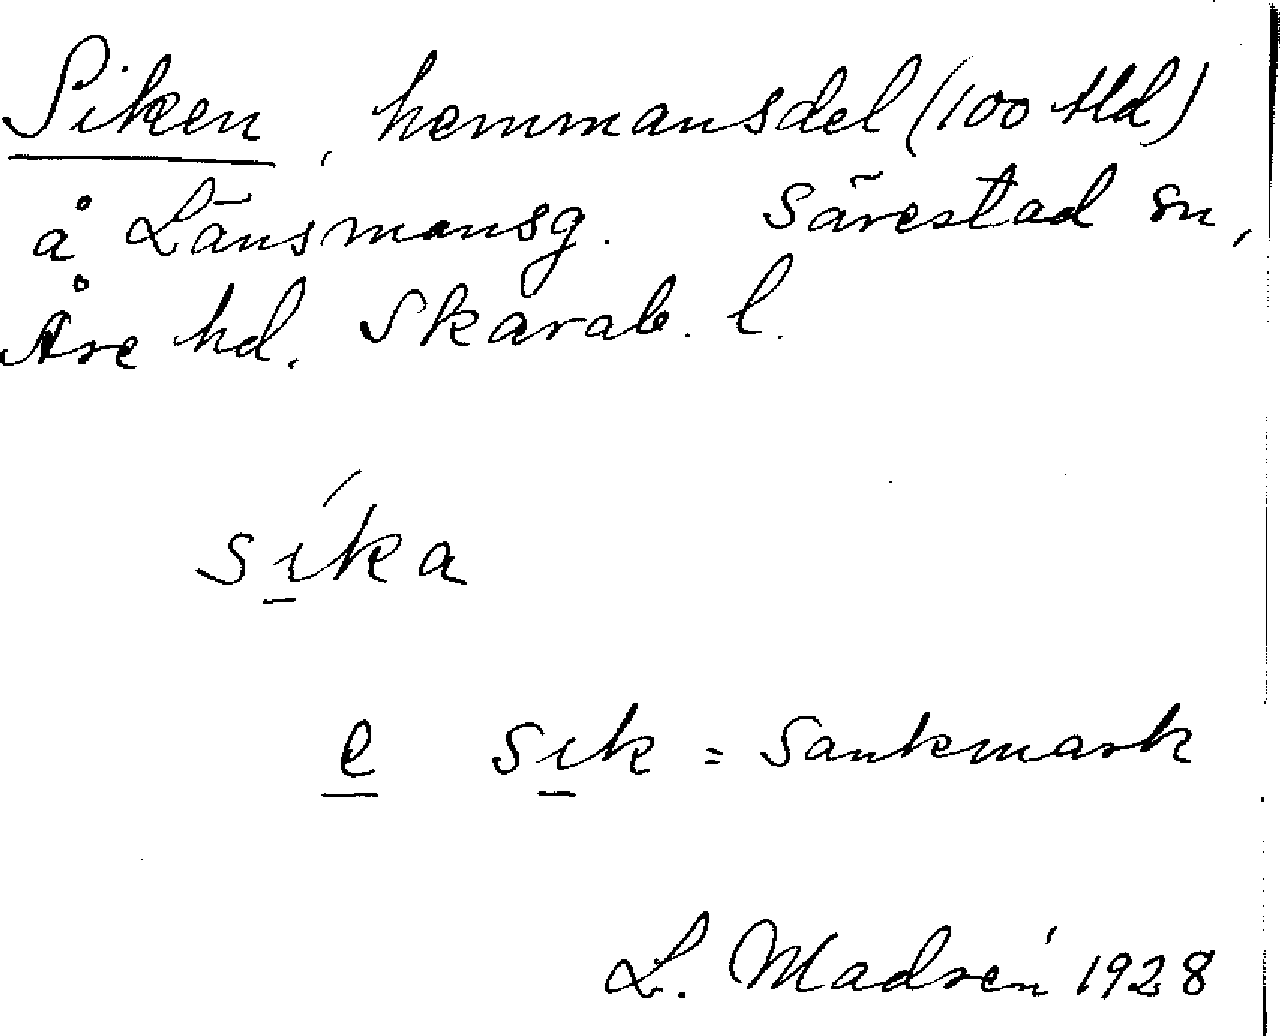 Siken, hemmansdel (100 tld)
å Länsmansg. Särestad sn,
Åre hd. Skarab. l.
síka
e sik = Sankmark
L. Madrén 1928